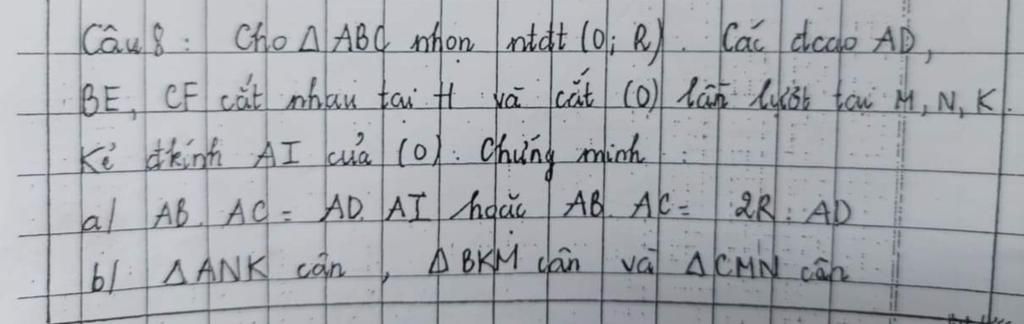 Câu 8: Cho Δ ABC nhọn ntđt (O; R). Các đcao AD,
BE, CF cắt nhau tại H và cắt (O) lần lượt tại M, N, K.
Kẻ đkính AI của (O). Chứng minh
a/ AB. AC = AD. AI hoặc AB. AC = 2R. AD
b/ Δ ANK cân, Δ BKM cân và Δ CMN cân